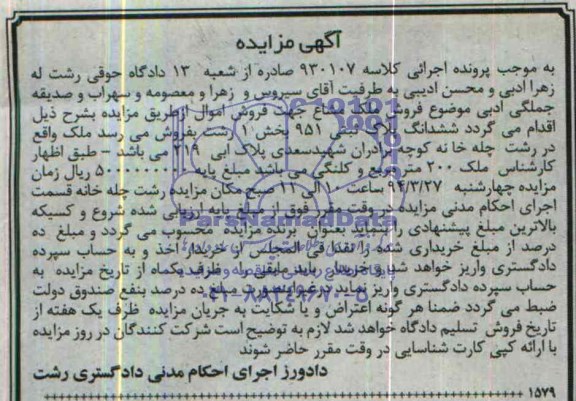 آگهی مزایده
به موجب پرونده اجرائی کلاسه ۹۳۰۱۰۷ صادره از شعبه ۱۳ دادگاه حقوقی رشت له
زهرا ادبی و محسن ادیبی به طرفیت آقای سیروس و زهرا و معصومه و سهراب و صدیقه
جملگی ادبی موضوع فروش مشاع جهت فروش اموال ازطریق مزایده بشرح ذیل
اقدام می گردد ششدانگ پلاک ثبتی ۹۵۱ بخش ۱ رشت بفروش می رسد ملک واقع
در رشت چله خا نه کوچه برادران شهیدسعدی پلاک ابی ۲۱۹ می باشد – طبق اظهار
کارشناس ملک ۲۰۰ متر مربع و کلنگی می باشد مبلغ پایه ریال زمان
مزایده چهارشنبه ۹۴/۳/۲۷ ساعت ۱۰ الی ۱۱ صبح مکان مزایده رشت چله خانه قسمت
اجرای احکام مدنی مزایده در وقت مقرر فوق از مبلغ پایه ارزیابی شده شروع و کسیکه
بالاترین مبلغ پیشنهادی را بنماید بعنوان برنده مزایده محسوب می گردد و مبلغ ده
درصد از مبلغ خریداری شده را نقدا فی المجلس از خریدار اخذ و به حساب سپرده
دادگستری واریز خواهد شد و خریدار باید مابقی ظرف یکماه از تاریخ مزایده به
حساب سپرده دادگستری واریز نماید درغیر اینصورت مبلغ ده درصد بنفع صندوق دولت
ضبط می گردد ضمنا هر گونه اعتراض و یا شکایت به جریان مزایده ظرف یک هفته از
تاریخ فروش تسلیم دادگاه خواهد شد لازم به توضیح است شرکت کنندگان در روز مزایده
با ارائه کپی کارت شناسایی در وقت مقرر حاضر شوند
دادورز اجرای احکام مدنی دادگستری رشت
۱۵۷۹
ParsNamadData
۰۲۱-۸۸۳۴۹۶۷۰-۵